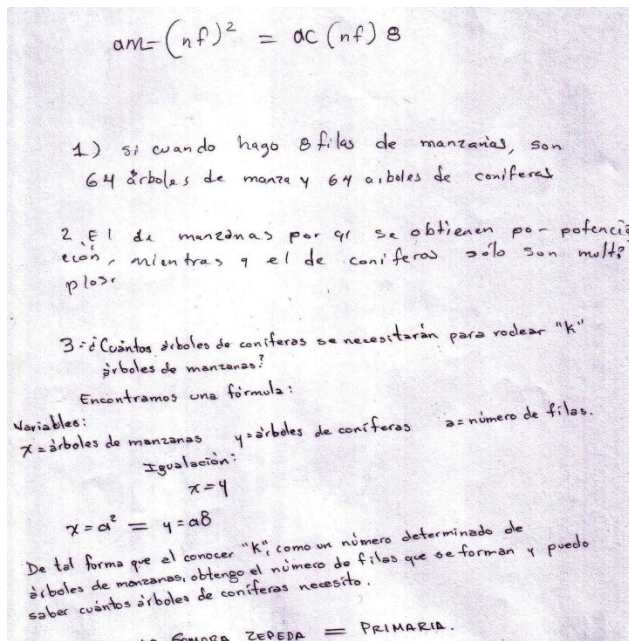 am=(nf)² = ac (nf) 8
1) si cuando hago 8 filas de manzanas, son
64 árboles de manza y 64 arboles de coniferas
2. El de manzanas por q se obtienen por potencia
ción, mientras q el de coniferas sólo son multi
plos.
3.- ¿Cuántos árboles de coníferas se necesitarán para rodear "k"
árboles de manzanas?
Encontramos una fórmula:
Variables:
x=árboles de manzanas y=árboles de coníferas a=número de filas.
Igualación:
x=y
x=a² = y=a8
De tal forma que al conocer "k", como un número determinado de
árboles de manzanas, obtengo el número de filas que se forman y puedo
saber cuántos árboles de coníferas necesito.
ZEPEDA = PRIMARIA.